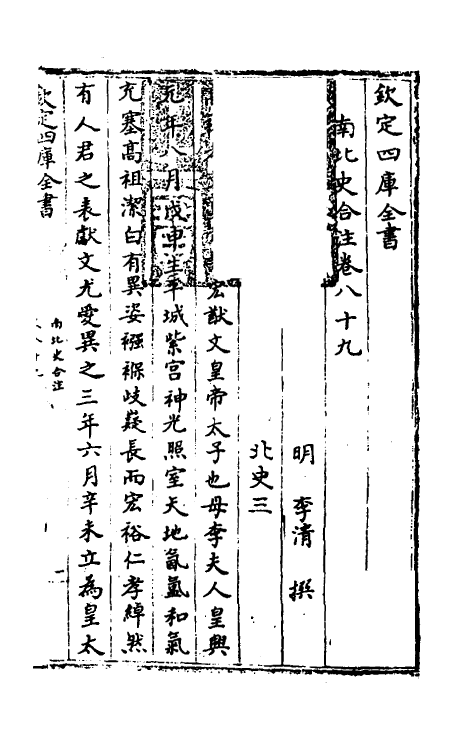 欽定四庫全書
南北史合注卷八十九
明 李清 撰
北史三
宏獻文皇帝太子也母李夫人皇興
元年八月戊申生平城紫宫神光照室天地氤氲和氣
充塞高祖潔白有異姿襁褓岐嶷長而宏裕仁孝綽然
有人君之表獻文尤愛異之三年六月辛未立為皇太
欽定四庫全書
南北史合注
一